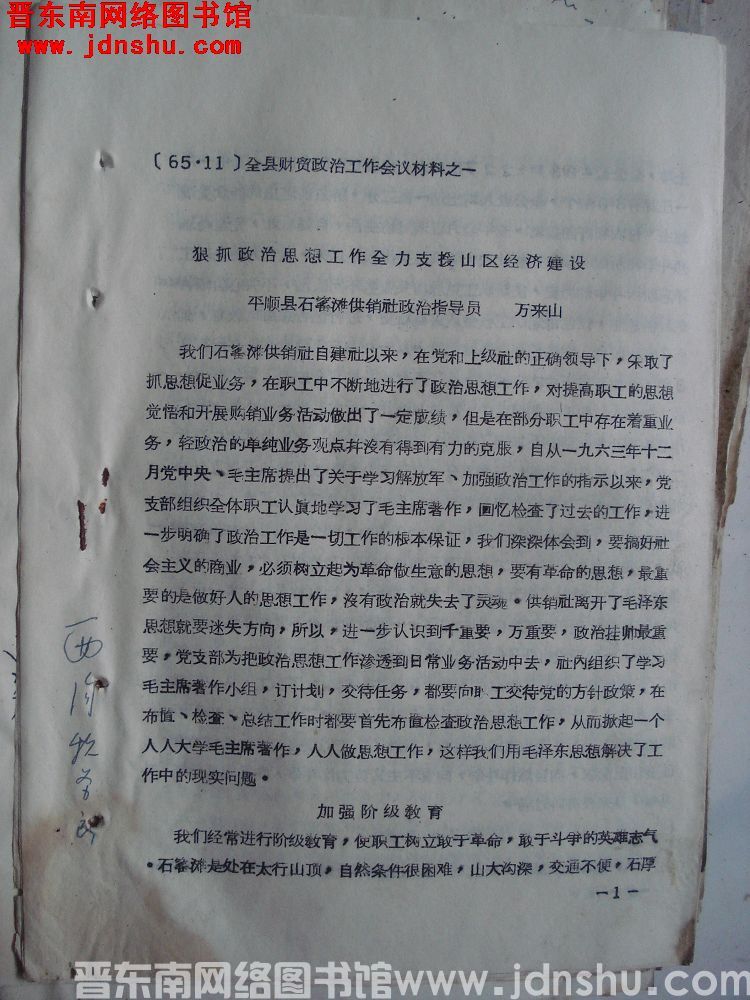 晋东南网络图书馆
www.jdnshu.com
〔65·11〕全县财贸政治工作会议材料之一
狠抓政治思想工作全力支援山区经济建设
平顺县石窰滩供销社政治指导员 万来山
我们石窰滩供销社自建社以来，在党和上级社的正确领导下，采取了
抓思想促业务，在职工中不断地进行了政治思想工作，对提高职工的思想
觉悟和开展购销业务活动做出了一定成绩，但是在部分职工中存在着重业
务，轻政治的单纯业务观点并没有得到有力的克服，自从一九六三年十二
月党中央、毛主席提出了关于学习解放军、加强政治工作的指示以来，党
支部组织全体职工认真地学习了毛主席著作，回忆检查了过去的工作，进
一步明确了政治工作是一切工作的根本保证，我们深深体会到，要搞好社
会主义的商业，必须树立起为革命做生意的思想，要有革命的思想，最重
要的是做好人的思想工作，沒有政治就失去了灵魂。供销社离开了毛泽东
思想就要迷失方向，所以，进一步认识到千重要，万重要，政治挂帅最重
要，党支部为把政治思想工作渗透到日常业务活动中去，社内组织了学习
毛主席著作小组，订计划，交待任务，都要向职工交待党的方针政策，在
布置、检查、总结工作时都要首先布置检查政治思想工作，从而掀起一个
人人大学毛主席著作，人人做思想工作，这样我们用毛泽东思想解决了工
作中的现实问题。
加强阶级教育
我们经常进行阶级教育，使职工树立敢于革命，敢于斗争的英雄志气
。石窰滩是处在太行山顶，自然条件很困难，山大沟深，交通不便，石厚
—1—
晋东南网络图书馆www.jdnshu.com